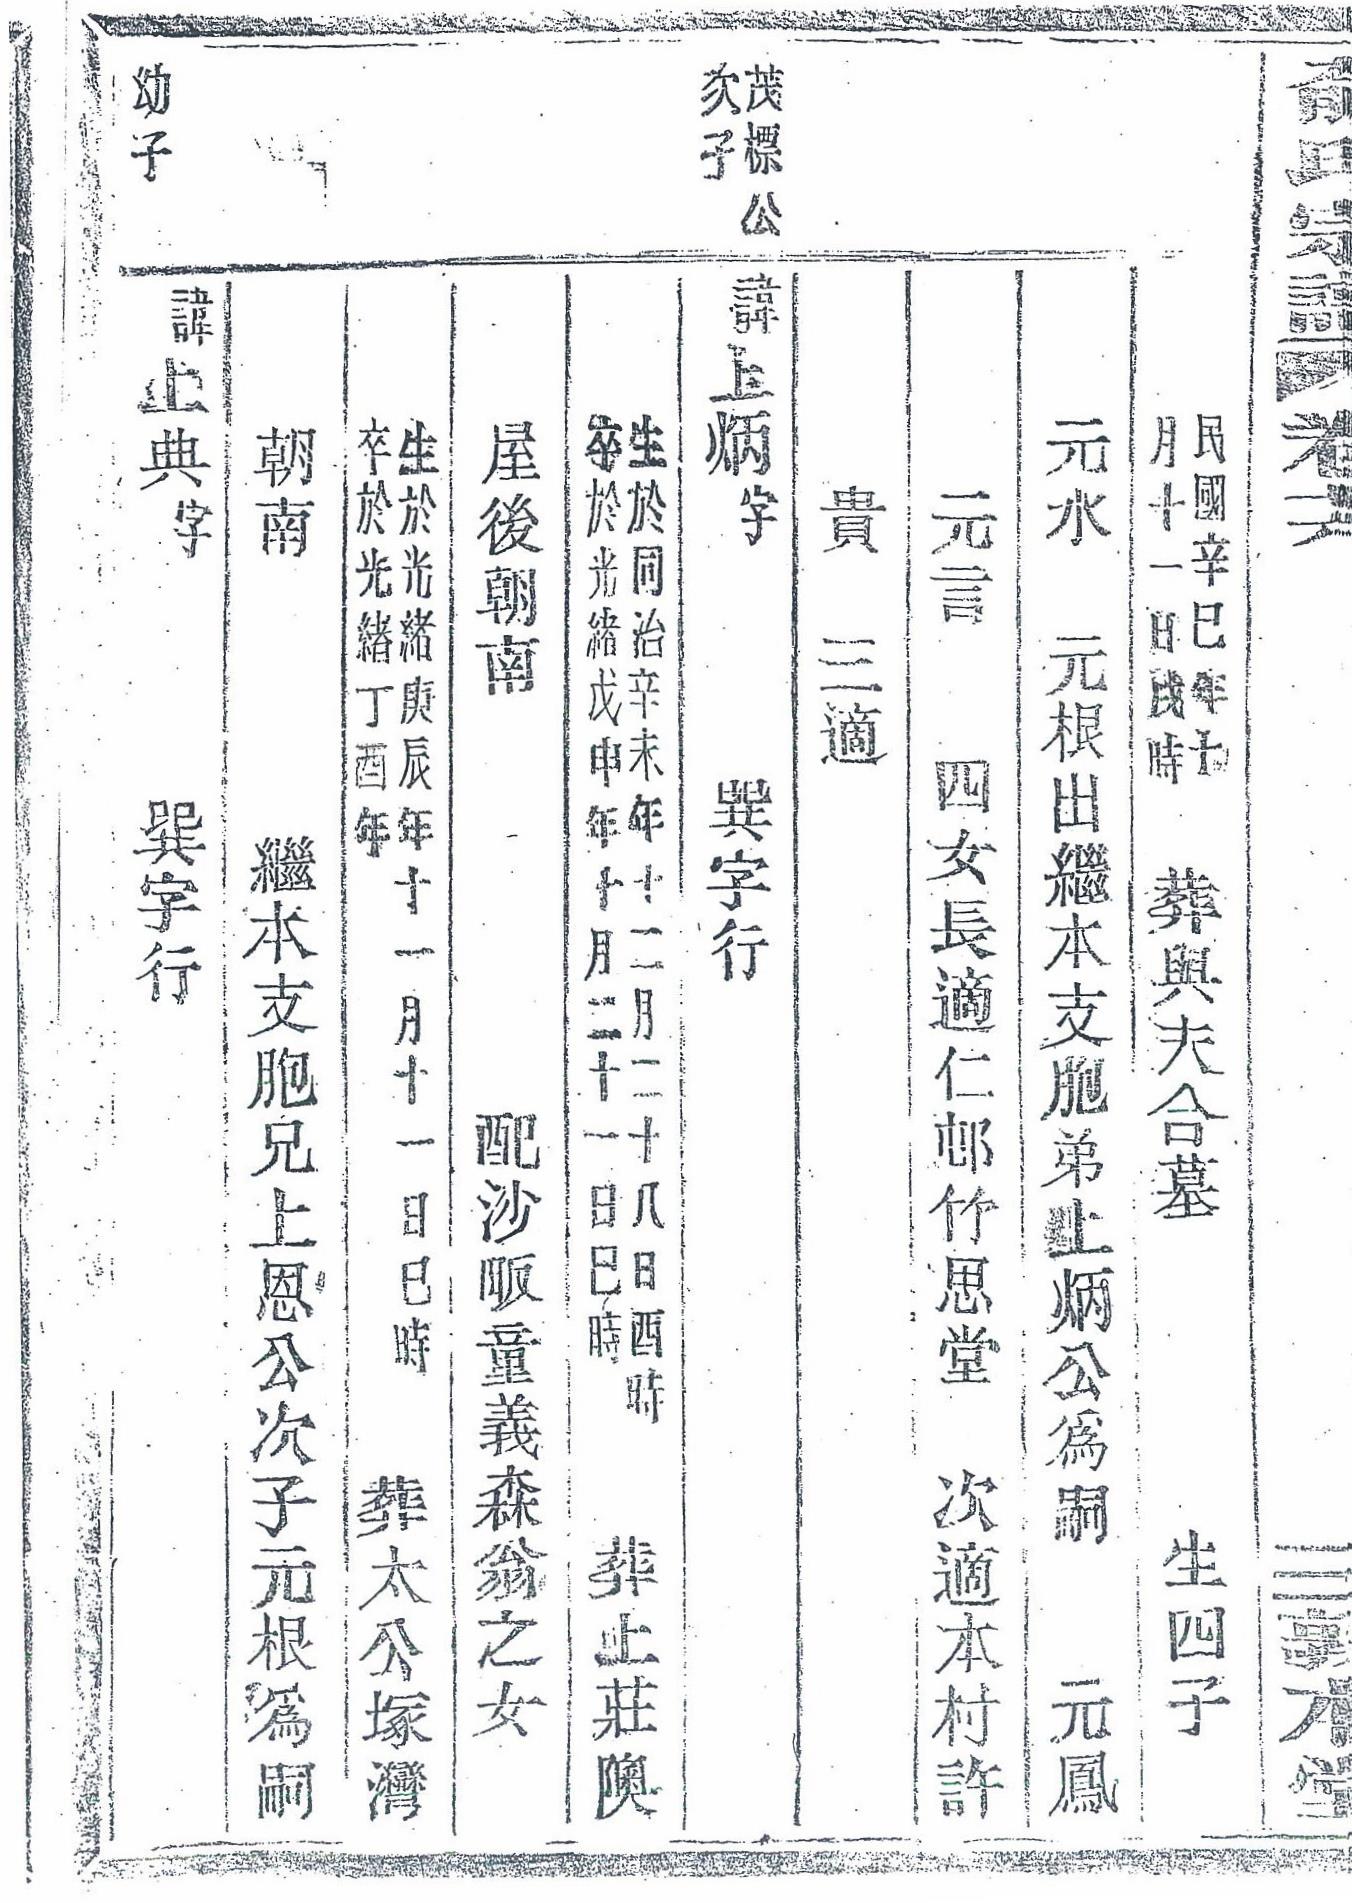 氏宗譜 卷六
民國辛巳年十
月十一日戌時
葬與夫合墓 生四子
元水 元根出繼本支胞弟上炳公為嗣 元鳳
元言 四女長適仁邨竹思堂 次適本村許
貴 三適
茂標公
次子
諱上炳字 巽字行
生於同治辛未年十二月二十八日酉時
卒於光緒戊申年十月二十一日巳時
葬上莊隩
屋後朝南 配沙畈童義森翁之女
生於光緒庚辰年十一月十一日巳時
卒於光緒丁酉年
葬太公塚灣
朝南 繼本支胞兄上恩公次子元根為嗣
幼子
諱上典字 巽字行